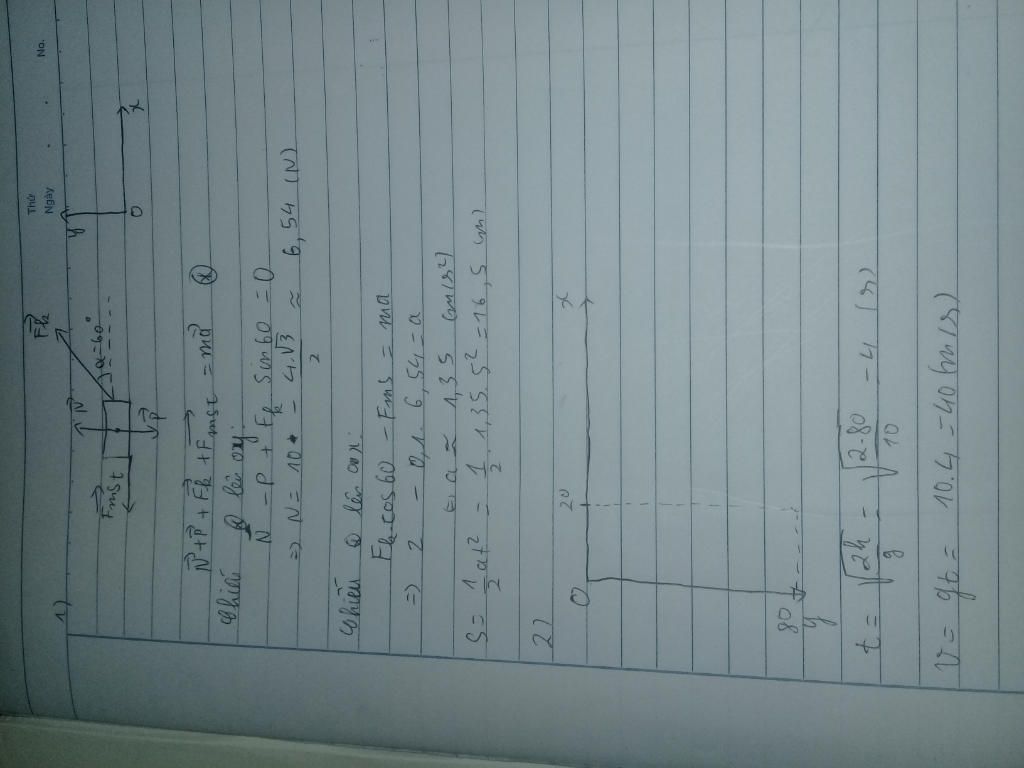 Thứ
Ngày
No.
1)
Fk
N
y
Fmst
α=60°
P
O
x
N + P + Fk + Fmst = ma (*)
chiếu (*) lên oy:
N - P + Fk Sin 60 = 0
=> N = 10 - 4√3/2 ≈ 6,54 (N)
chiếu (*) lên ox:
Fk cos 60 - Fms = ma
=> 2 - 0,1. 6,54 = a
a ≈ 1,35 (m/s²)
S = 1/2 at² = 1/2 . 1,35. 5² = 16,5 (m)
2)
O
20
x
80
y
t = √(2h/g) = √(2.80/10) = 4 (s)
v = gt = 10.4 = 40 (m/s)